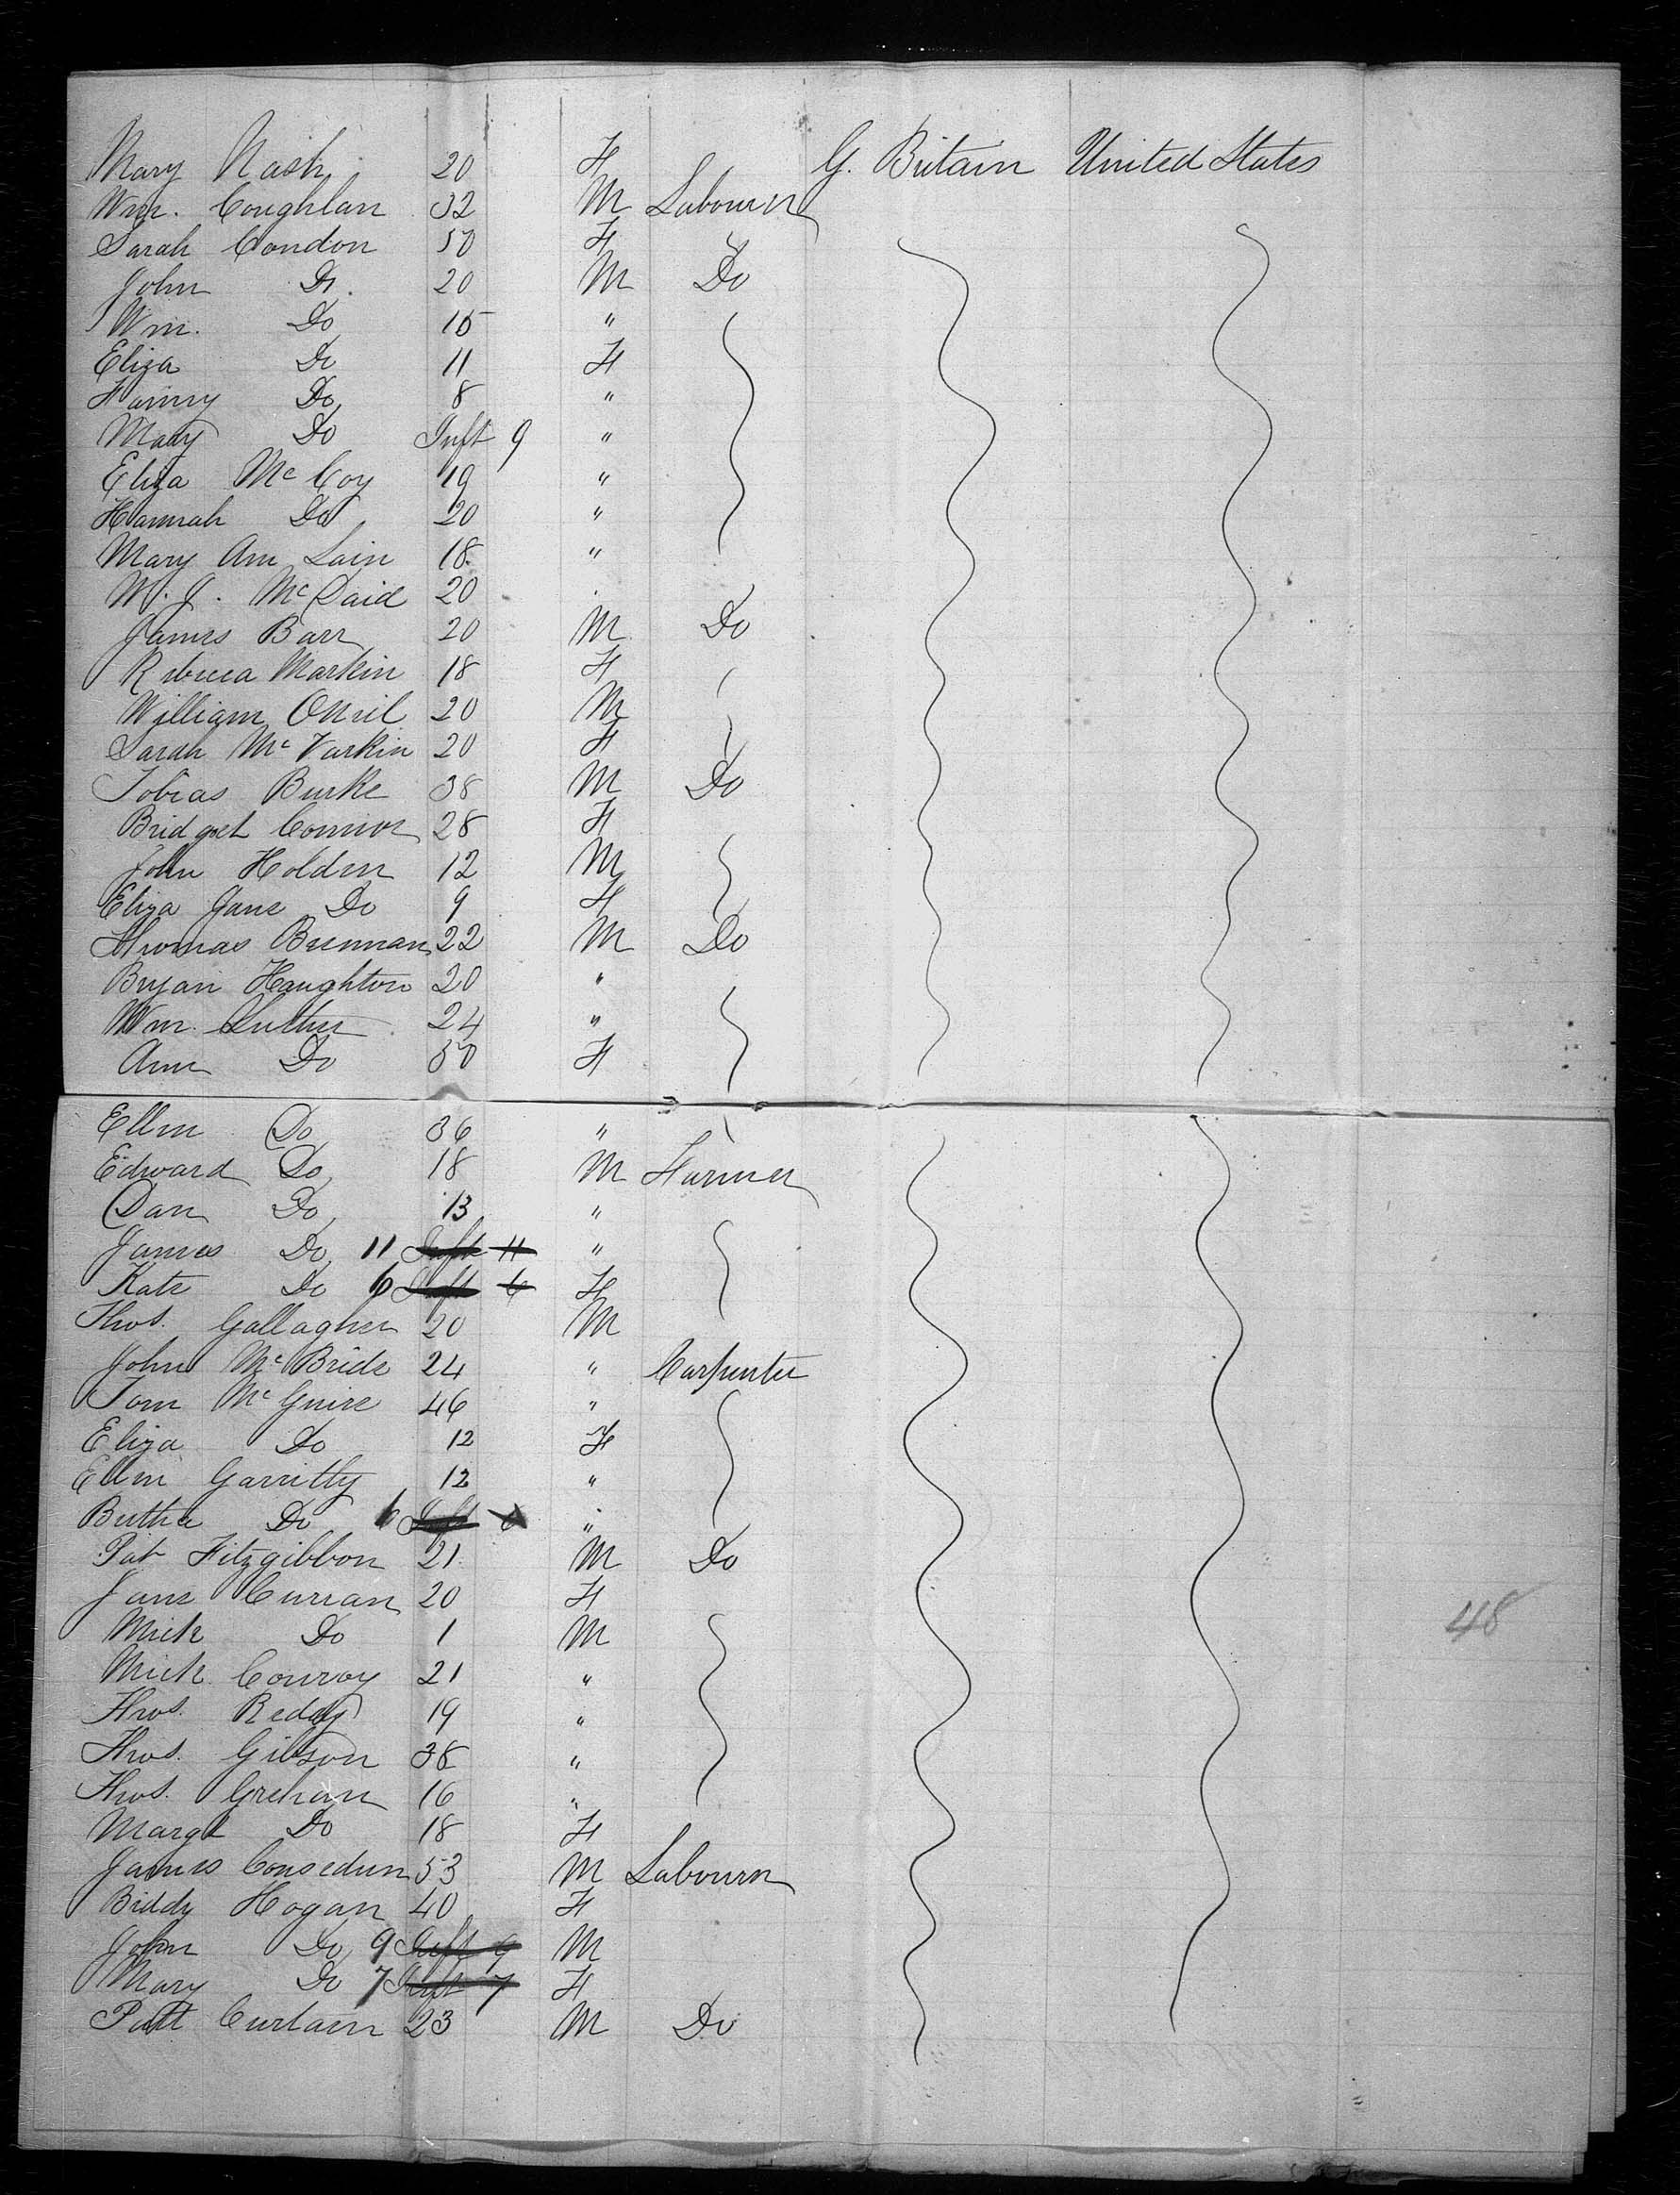 Mary Nash 20 F G. Britain United States
Wm. Coughlan 32 M Labourer
Sarah Condon 50 F
John Do. 20 M Do
Wm. Do 15 "
Eliza Do 11 F
Fanny Do 8 "
Mary Do Inft 9 "
Eliza McCoy 19 "
Hannah Do 20 "
Mary Ann Lain 18 "
M. J. McDaid 20
James Barr 20 M Do
Rebecca Markin 18 F
William ONeil 20 M
Sarah McVarkin 20 F
Tobias Burke 38 M Do
Bridget Connor 28 F
John Holden 12 M
Eliza Jane Do 9 F
Thomas Brennan 22 M Do
Bryan Haughton 20 "
Wm. 24 "
Ann Do 50 F
Ellen Do 36 "
Edward Do 18 M Farmer
Dan Do 13 "
James Do 11 Inft 11 "
Kate Do 6 Inft 6 F
Thos. Gallagher 20 M
John McBride 24 " Carpenter
Tom McGuire 46 "
Eliza Do 12 F
Ellen Garritty 12 "
Do 6 Inft 6 "
Pat Fitzgibbon 21 M Do
Jane Curran 20 F
Mick Do 1 M 48
Mick Conroy 21 "
Thos. Reddy 19 "
Thos. Gibson 38 "
Thos. Grehan 16 "
Margt Do 18 F
James Consedun 53 M Labourer
Biddy Hogan 40 F
John Do 9 Inft 9 M
Mary Do 7 Inft 7 F
Patt Curtain 23 M Do